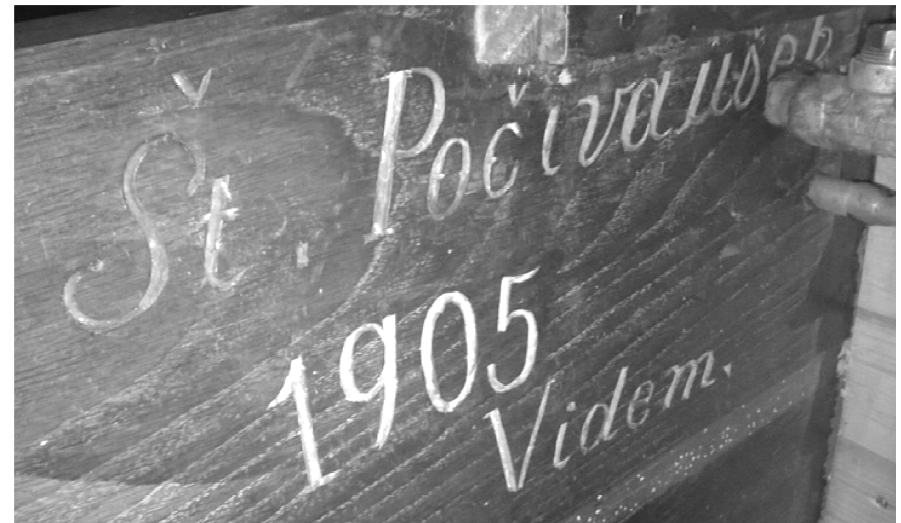 Št. Počivaušeh
1905
Videm.